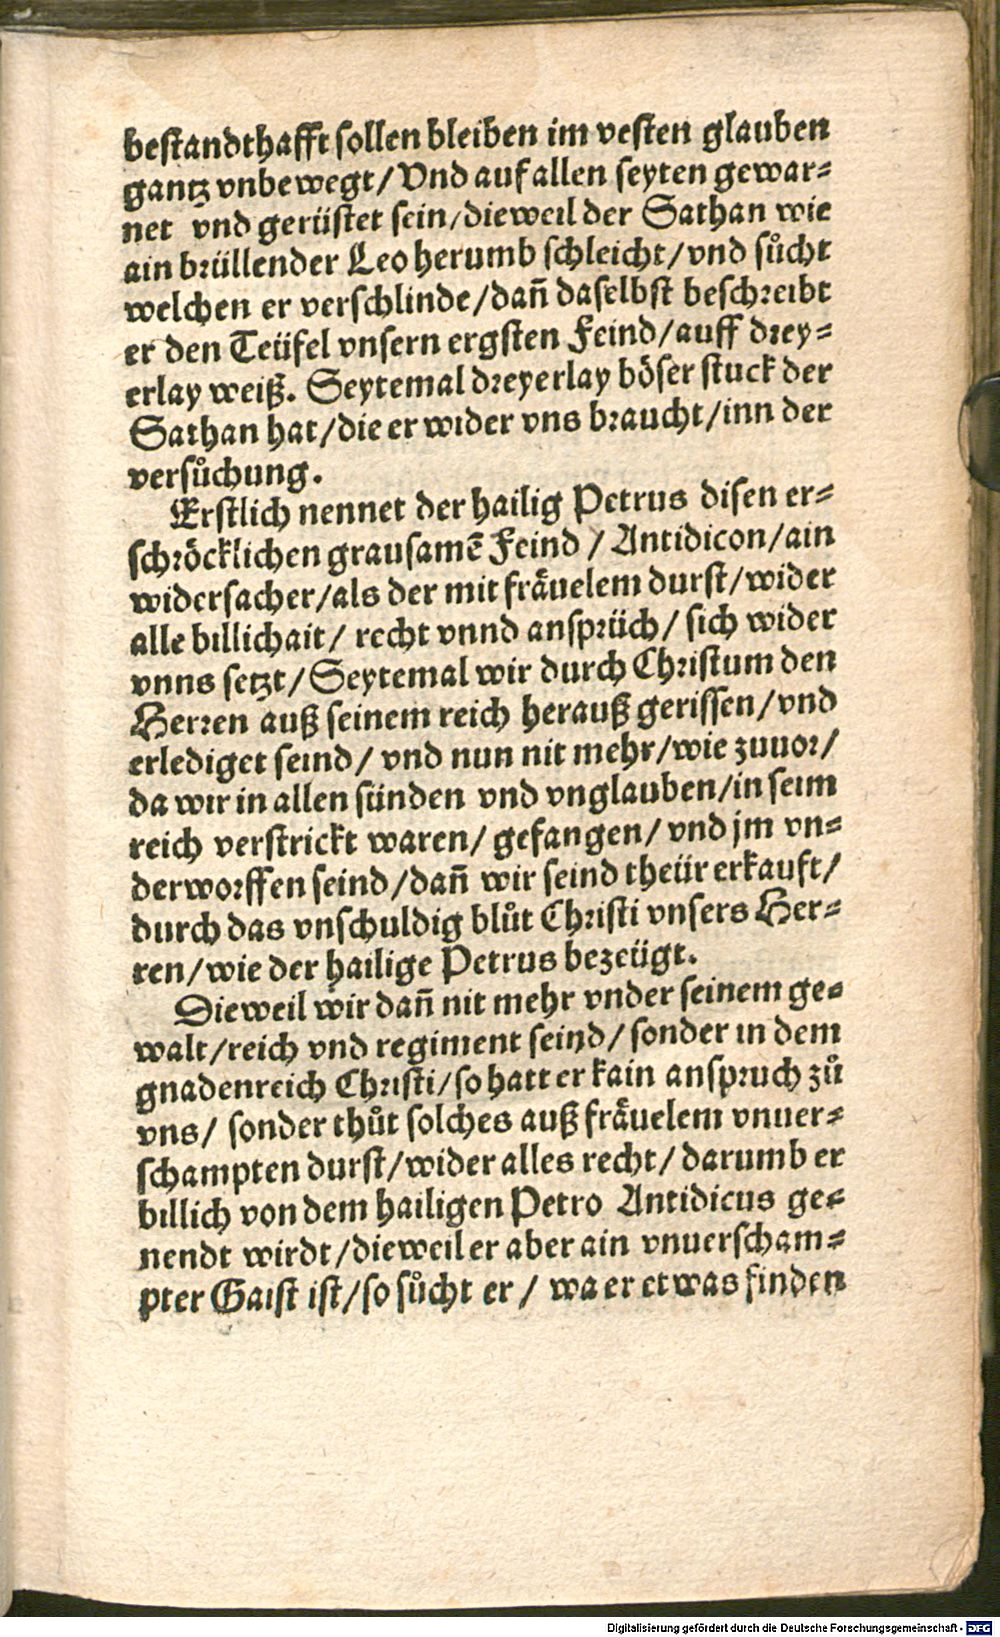 bestandthafft sollen bleiben im vesten glauben
gantz vnbewegt/ Vnd auf allen seyten gewar-
net vnd gerüstet sein/ dieweil der Sathan wie
ain brüllender Leo herumb schleicht/ vnd sůcht
welchen er verschlinde/ dañ daselbst beschreibt
er den Teüfel vnsern ergsten Feind/ auff drey-
erlay weiß. Seytemal dreyerlay böser stuck der
Sathan hat/ die er wider vns braucht/ inn der
versůchung.
Erstlich nennet der hailig Petrus disen er-
schröcklichen grausamẽ Feind / Antidicon/ ain
widersacher/ als der mit fräuelem durst/ wider
alle billichait/ recht vnnd ansprüch/ sich wider
vnns setzt/ Seytemal wir durch Christum den
Herren auß seinem reich herauß gerissen/ vnd
erlediget seind/ vnd nun nit mehr/ wie zuuor/
da wir in allen sünden vnd vnglauben/ in seim
reich verstrickt waren/ gefangen/ vnd jm vn-
derworffen seind/ dañ wir seind theür erkauft/
durch das vnschuldig blůt Christi vnsers Her-
ren/ wie der hailige Petrus bezeügt.
Dieweil wir dañ nit mehr vnder seinem ge-
walt/ reich vnd regiment seind/ sonder in dem
gnadenreich Christi/ so hatt er kain anspruch zů
vns/ sonder thůt solches auß fräuelem vnuer-
schampten durst/ wider alles recht/ darumb er
billich von dem hailigen Petro Antidicus ge-
nendt wirdt/ dieweil er aber ain vnuerscham-
pter Gaist ist/ so sůcht er / wa er etwas finden
Digitalisierung gefördert durch die Deutsche Forschungsgemeinschaft - DFG